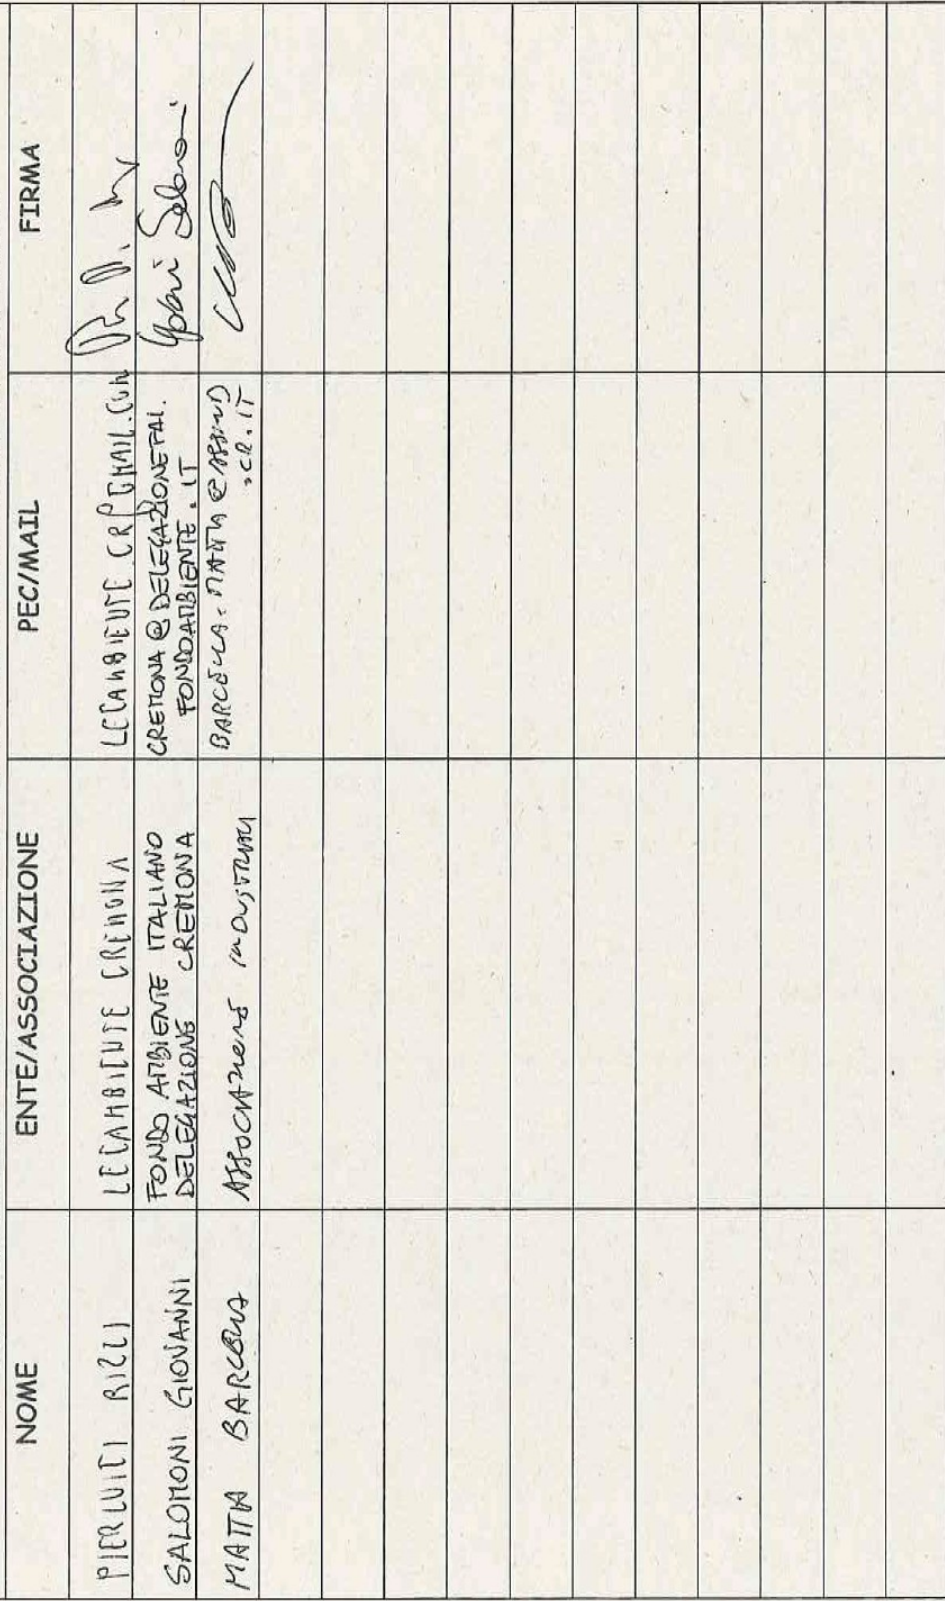 NOME ENTE/ASSOCIAZIONE PEC/MAIL FIRMA
PIERLUIGI RIZZI LEGAMBIENTE CREMONA LEGAMBIENTE.CR@GMAIL.COM
SALOMONI GIOVANNI FONDO AMBIENTE ITALIANO CREMONA@DELEGAZIONEFAI. Giovanni Salomoni
DELEGAZIONE CREMONA FONDOAMBIENTE.IT
MATTIA BARCELLA ASSOCIAZIONE INDUSTRIALI BARCELLA.MATTIA@ASSIND
.CR.IT